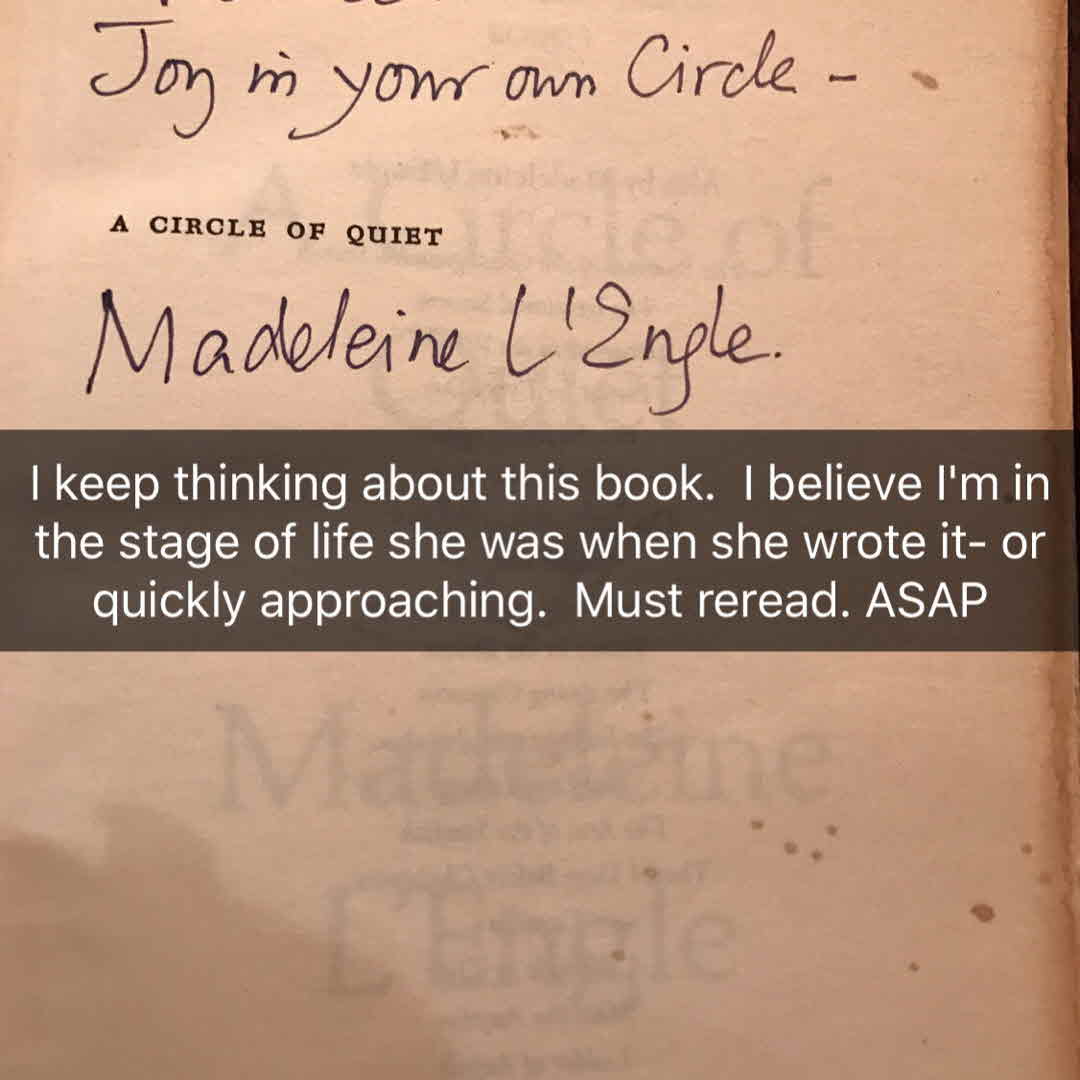 Joy in your own Circle -
A CIRCLE OF QUIET
Madeleine L'Engle.
I keep thinking about this book.  I believe I'm in
the stage of life she was when she wrote it- or
quickly approaching.  Must reread. ASAP
A Circle of
Quiet
Madeleine
L'Engle